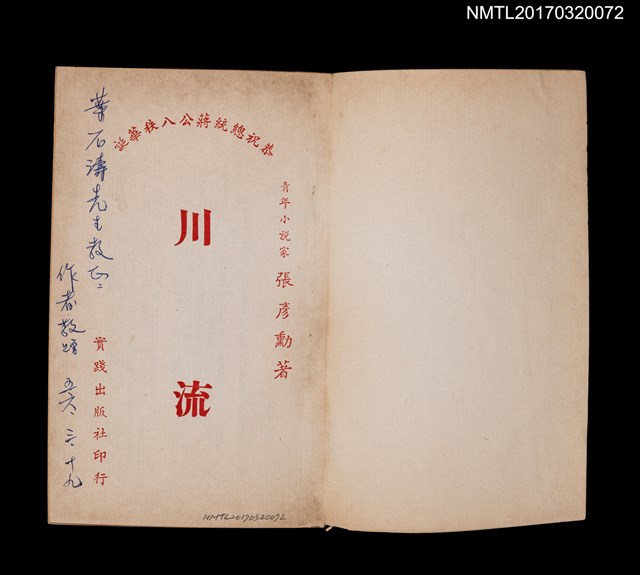 NMTL20170320072
恭祝總統蔣公八秩華誕
青年小説家 張彥勳著
川流
實踐出版社印行
葉石濤先生教正
作者敬贈 五六、三、十九
NMTL20170320072